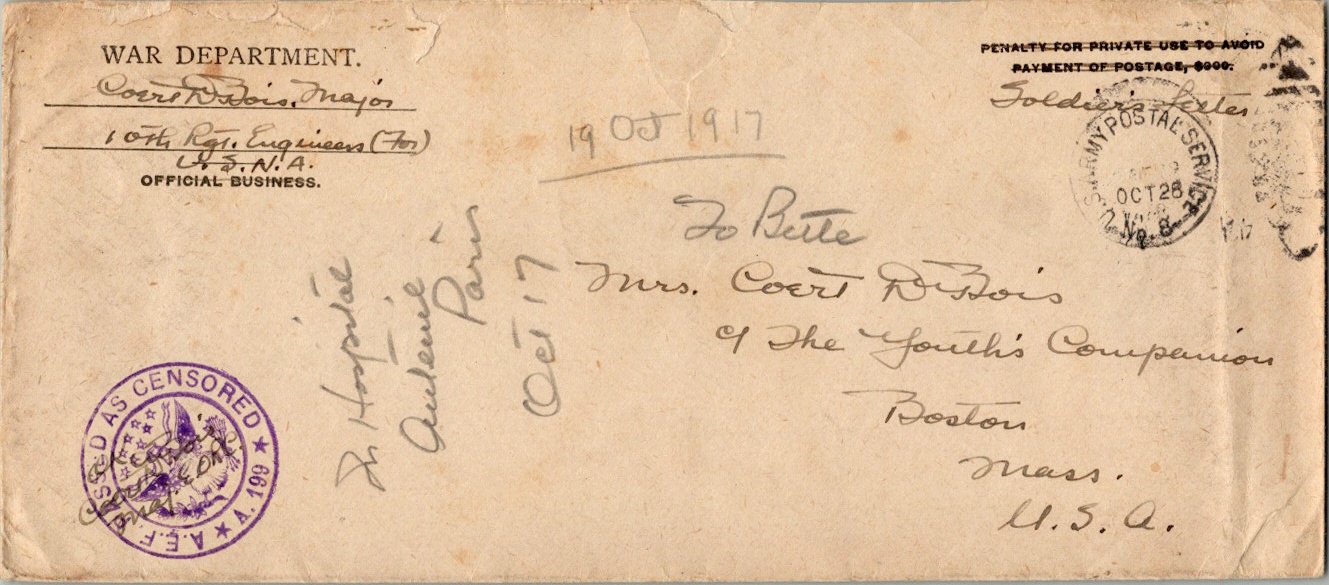 WAR DEPARTMENT.
Coert DuBois. Major
10th Rgt. Engineers (For)
U.S.N.A.
OFFICIAL BUSINESS.
PENALTY FOR PRIVATE USE TO AVOID
PAYMENT OF POSTAGE, $300.
Soldier's Letter
U.S. ARMY POSTAL SERVICE
OCT 28
No. 8
19 Oct 1917
To Bette
Mrs. Coert DuBois
c/o The Youth's Companion
Boston
Mass.
U.S.A.
In Hospital
Auteuil
Paris
Oct 17
PASSED AS CENSORED
A.E.F. A.199
Coert DuBois
Maj. E.O.R.C.